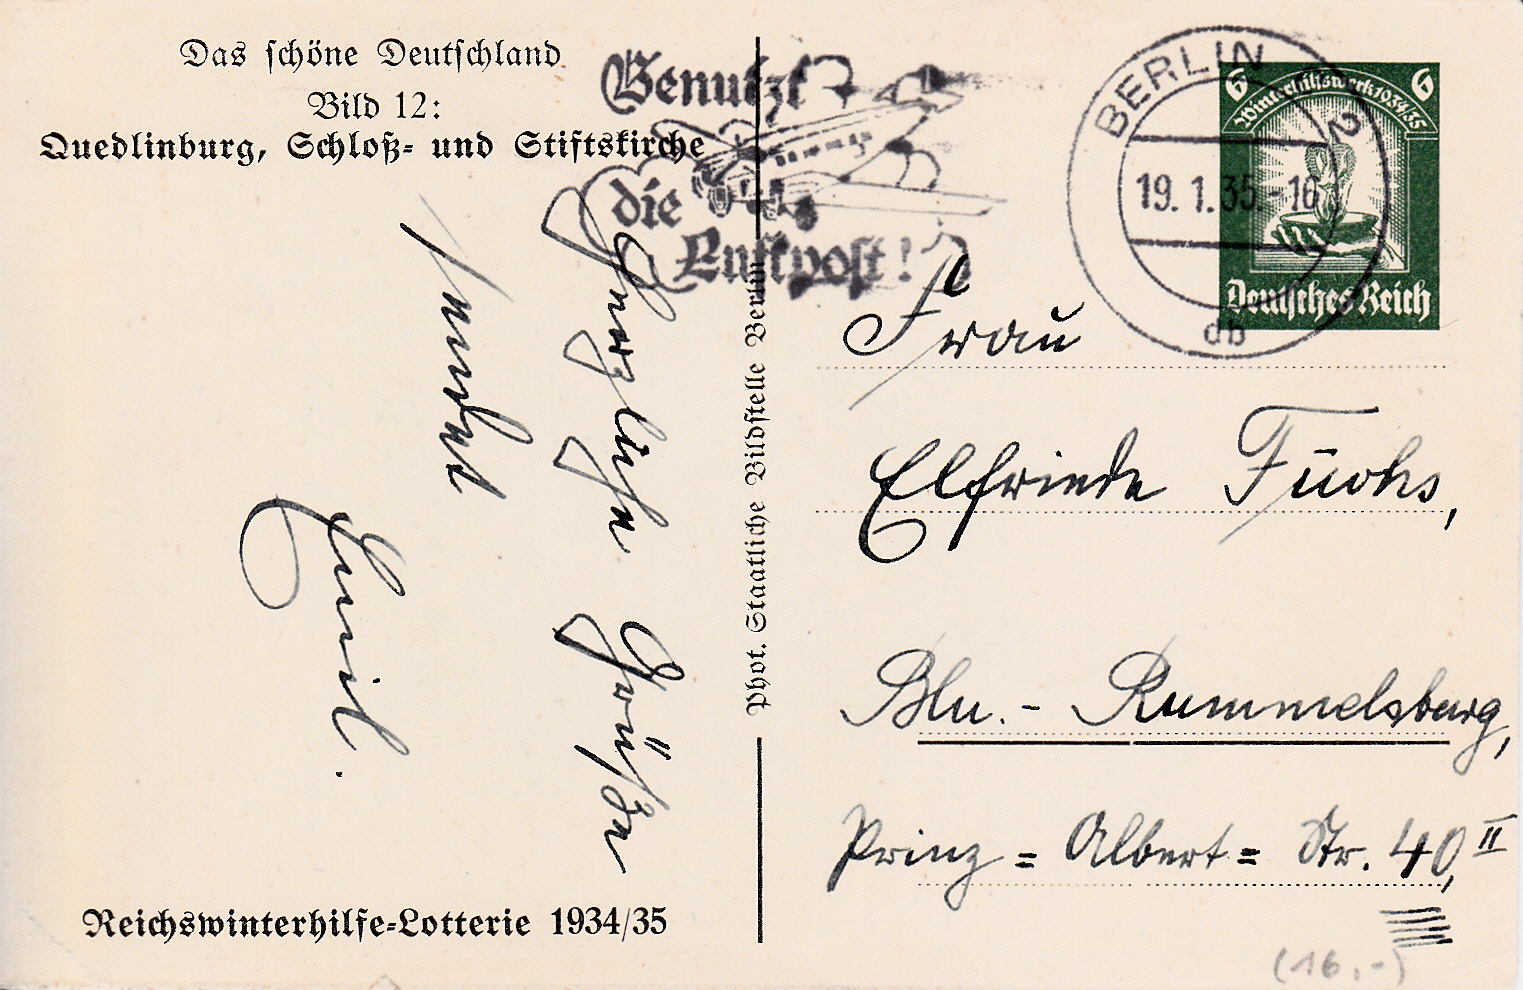 Das schöne Deutschland
Bild 12:
Quedlinburg, Schloß- und Stiftskirche
Benutzt
die
Luftpost!
BERLIN 2
19. 1. 35.-16
db
6 6
Winterhilfswerk 1934/35
Deutsches Reich
Frau
Elfriede Fuchs,
Bln.- Rummelsburg,
Prinz = Albert = Str. 40, II
Herzlichen Grüßen
sendet
Emil.
Phot. Staatliche Bildstelle Berlin
Reichswinterhilfe-Lotterie 1934/35
(16,-)